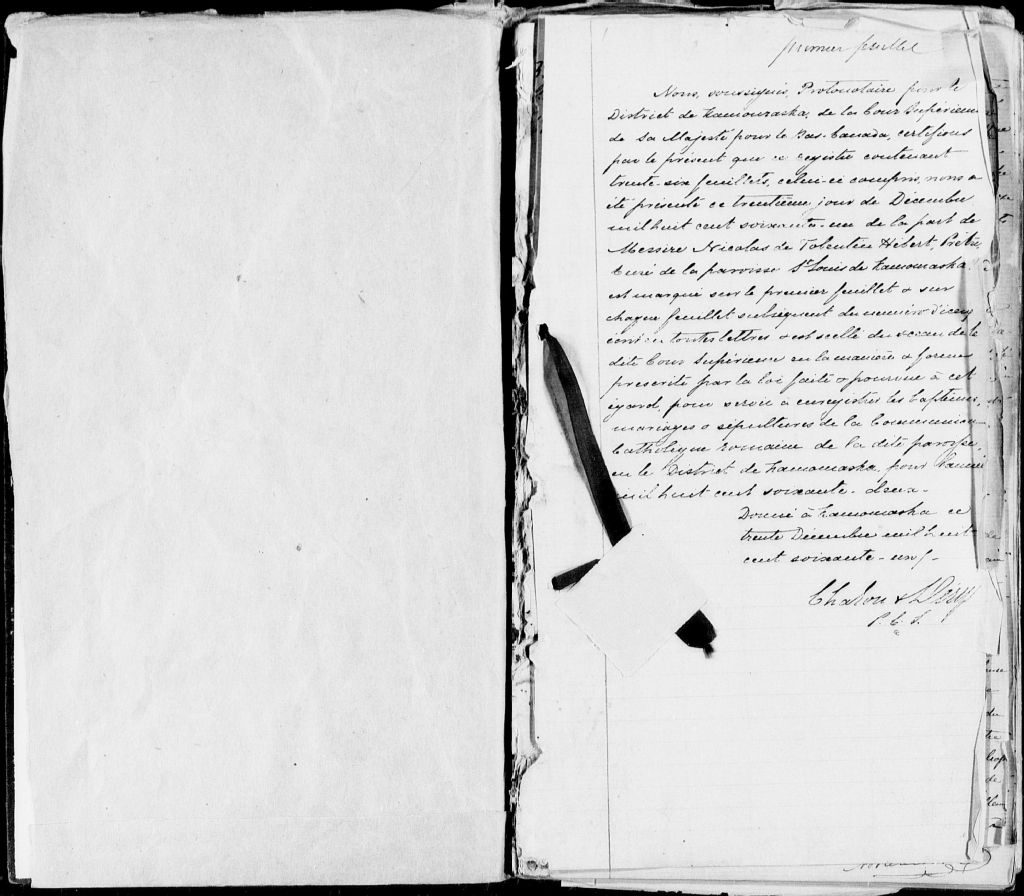 premier feuillet
Nous, soussignés, Protonotaire pour le
District de Kamouraska, de la Cour Supérieure
de Sa Majesté pour le Bas-Canada, certifions
par le présent que ce registre contenant
trente-six feuillets, celui-ci compris, nous a
été présenté ce trentième jour de Décembre
mil huit cent soixante-un de la part de
Messire Nicolas de Tolentin Hébert, Prêtre
Curé de la paroisse St Louis de Kamouraska
est marqué sur le premier feuillet & sur
chaque feuillet subséquent du numéro d'icelui
écrit en toutes lettres & est scellé du sceau de la
dite Cour Supérieure en la manière & forme
prescrite par la loi faite & pourvue à cet
égard, pour servir à enregistrer les baptêmes,
mariages & sépultures de la Communion
Catholique romaine de la dite paroisse,
en le District de Kamouraska, pour l'année
mil huit cent soixante-deux.
Donné à Kamouraska ce
trente Décembre mil huit
cent soixante-un
Chalou &
P. C. S.